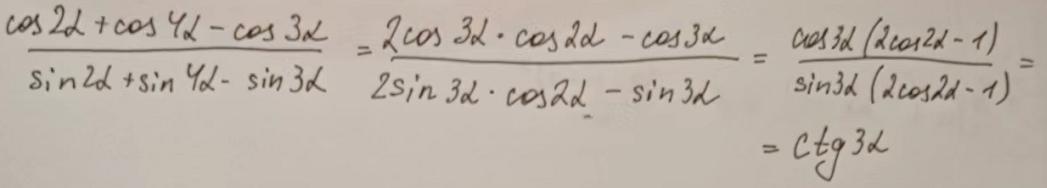 (cos2α + cos4α - cos3α)/(sin2α + sin4α - sin3α) = (2cos3α · cos2α - cos3α)/(2sin3α · cos2α - sin3α) = (cos3α(2cos2α - 1))/(sin3α(2cos2α - 1)) =
= ctg3α